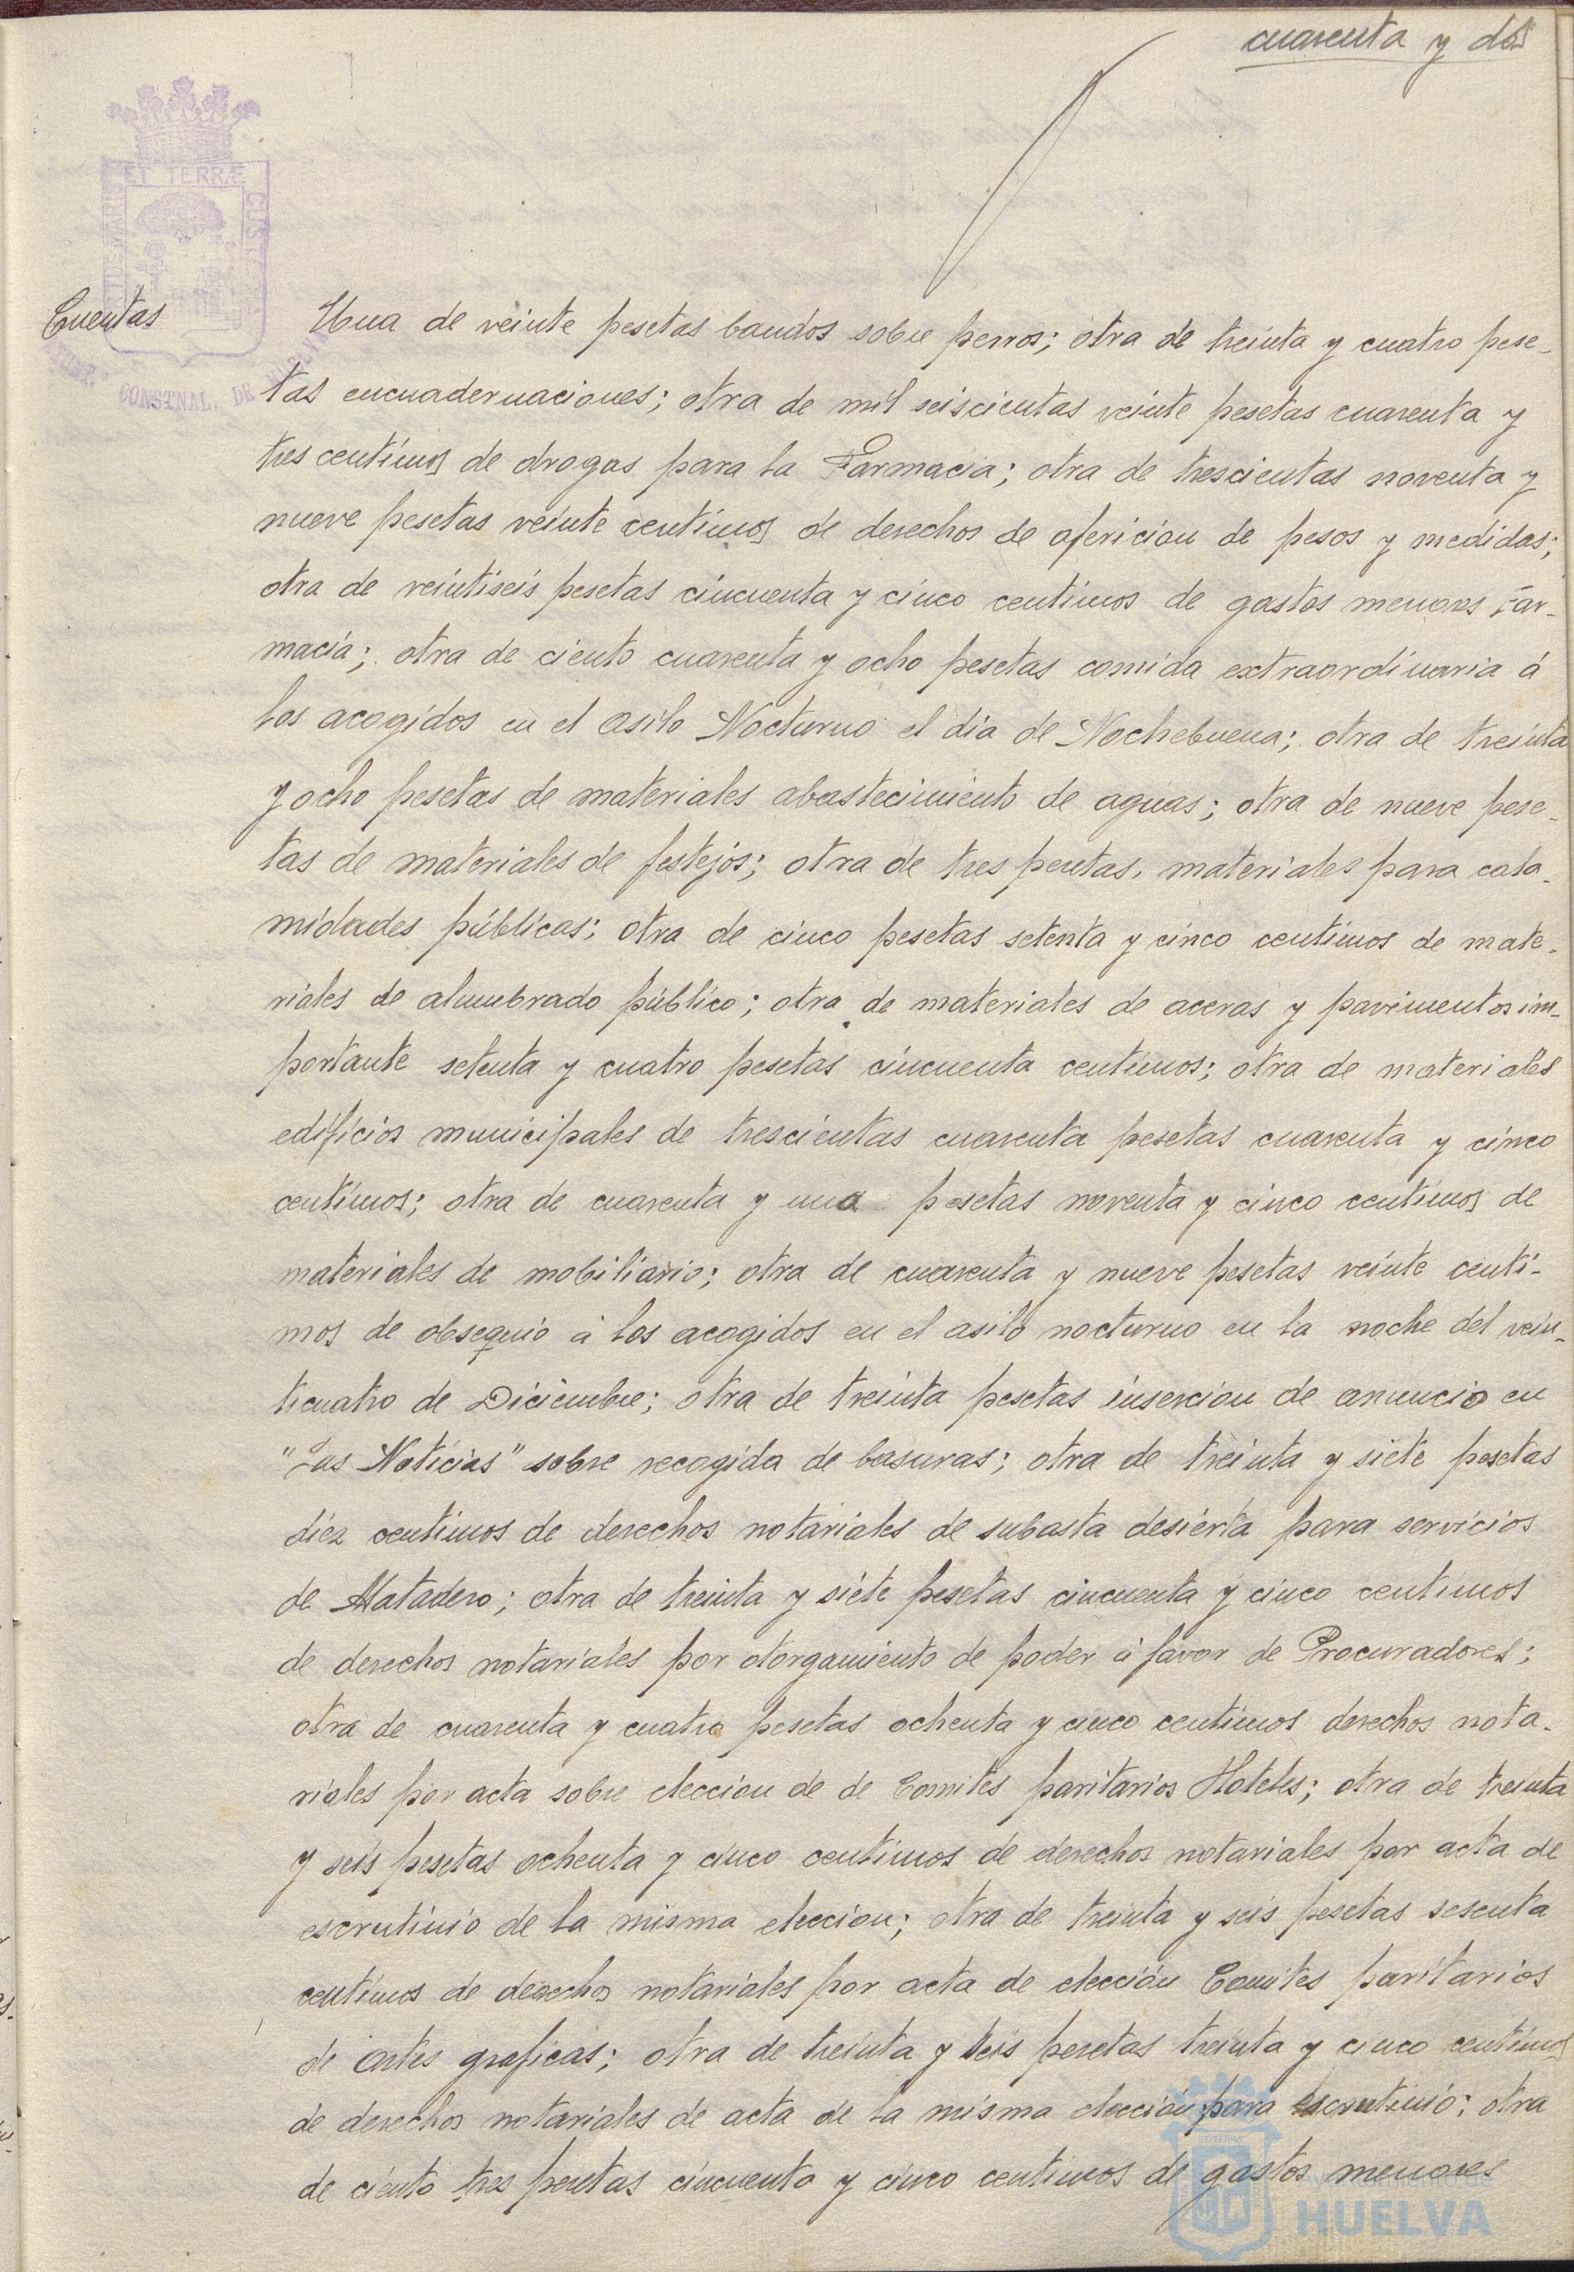 cuarenta y dos
ET TERRÆ
CONSTNAL. DE
Cuentas
Una de veinte pesetas bandos sobre perros; otra de treinta y cuatro pese-
tas encuadernaciones; otra de mil seiscientas veinte pesetas cuarenta y
tres centimos de drogas para la Farmacia; otra de trescientas noventa y
nueve pesetas veinte centimos de derechos de afericion de pesos y medidas;
otra de veintiseis pesetas cincuenta y cinco centimos de gastos menores Far-
macia; otra de ciento cuarenta y ocho pesetas comida extraordinaria á
los acogidos en el Asilo Nocturno el dia de Nochebuena; otra de treinta
y ocho pesetas de materiales abastecimiento de aguas; otra de nueve pese-
tas de materiales de festejos; otra de tres pesetas, materiales para cala-
midades públicas; otra de cinco pesetas setenta y cinco centimos de mate-
riales de alumbrado público; otra de materiales de aceras y pavimentos im-
portante setenta y cuatro pesetas cincuenta centimos; otra de materiales
edificios municipales de trescientas cuarenta pesetas cuarenta y cinco
centimos; otra de cuarenta y una pesetas noventa y cinco centimos de
materiales de mobiliario; otra de cuarenta y nueve pesetas veinte centi-
mos de obsequio á los acogidos en el asilo nocturno en la noche del vein-
ticuatro de Diciembre; otra de treinta pesetas insercion de anuncio en
"Las Noticias" sobre recogida de basuras; otra de treinta y siete pesetas
diez centimos de derechos notariales de subasta desierta para servicios
de Matadero; otra de treinta y siete pesetas cincuenta y cinco centimos
de derechos notariales por otorgamiento de poder á favor de Procuradores;
otra de cuarenta y cuatro pesetas ochenta y cinco centimos derechos nota-
riales por acta sobre eleccion de de Comités paritarios Hoteles; otra de treinta
y seis pesetas ochenta y cinco centimos de derechos notariales por acta de
escrutinio de la misma eleccion; otra de treinta y seis pesetas sesenta
centimos de derechos notariales por acta de elección Comites paritarios
de Artes graficas; otra de treinta y seis pesetas treinta y cinco centimos
de derechos notariales de acta de la misma elección para escrutinio; otra
de ciento tres pesetas cincuenta y cinco centimos de gastos menores
Ayuntamiento de
HUELVA